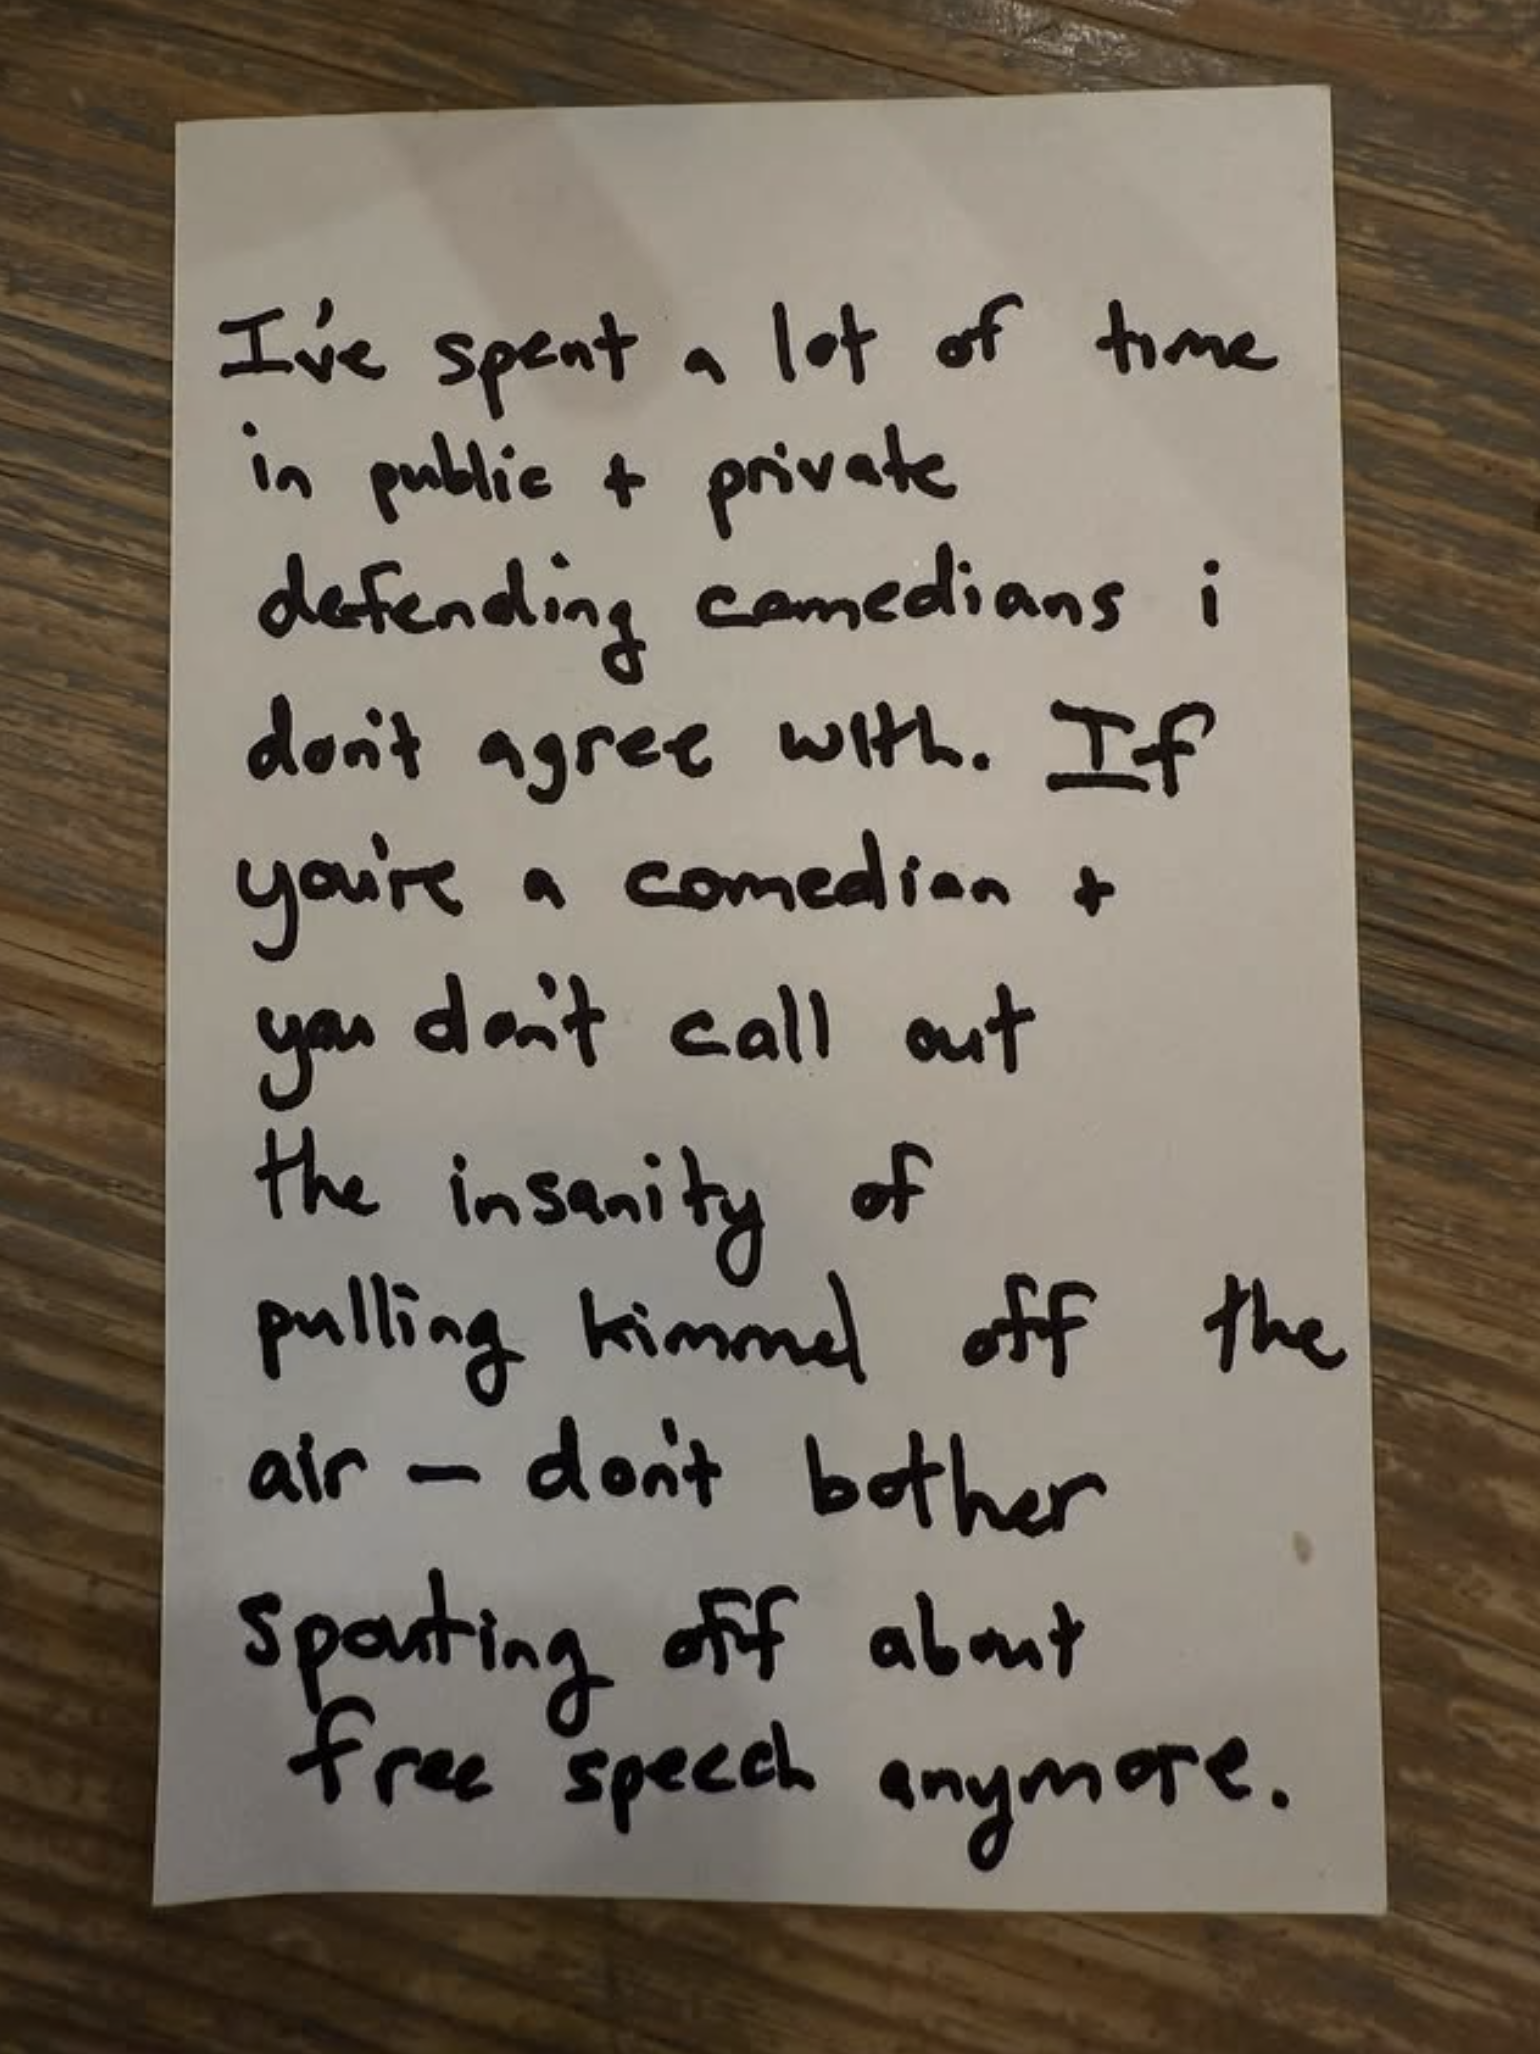 I've spent a lot of time
in public + private
defending comedians i
don't agree with. If
you're a comedian +
you don't call out
the insanity of
pulling kimmel off the
air – don't bother
spouting off about
free speech anymore.